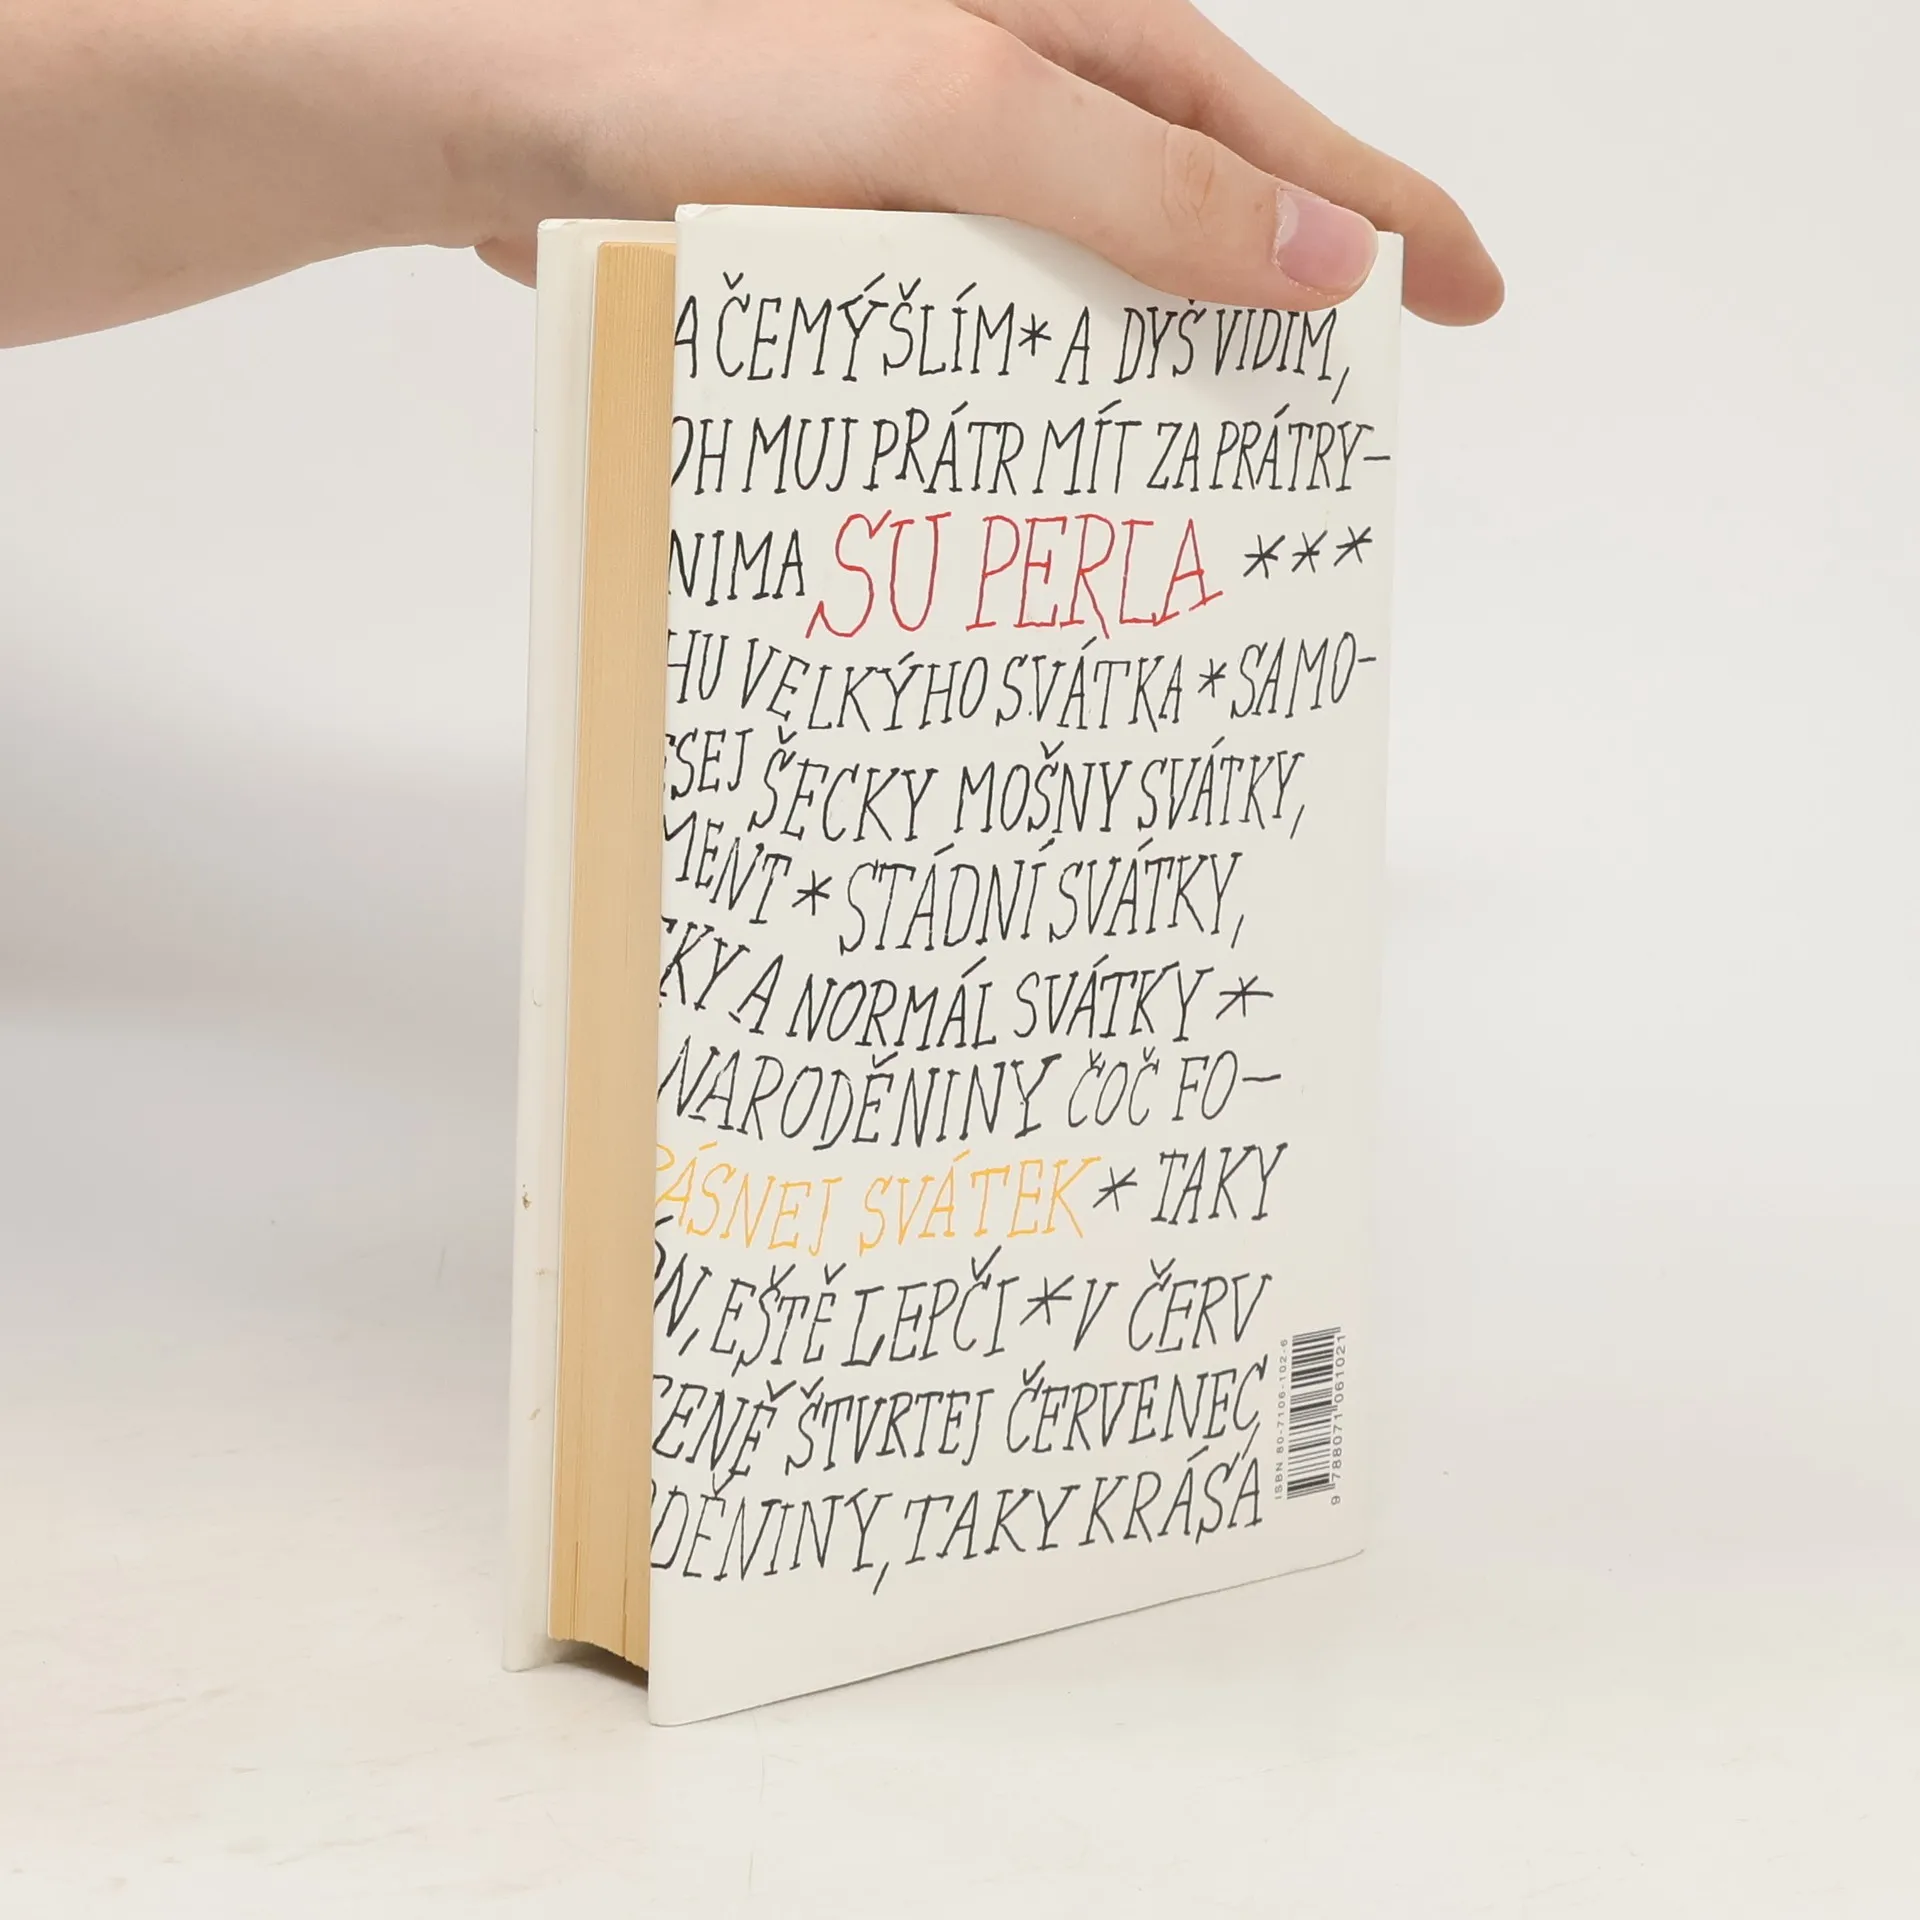 A ČEMÝŠLÍM * A DYŠ VIDIM,
OH MUJ PRÁTR MÍT ZA PRÁTRY–
NIMA SU PERLA ***
HU VELKÝHO SVÁTKA * SAMO-
SEJ ŠECKY MOŠNY SVÁTKY,
MENT * STÁDNÍ SVÁTKY,
KY A NORMÁL SVÁTKY *
NARODĚNINY ČOČ FO–
ÁSNEJ SVÁTEK * TAKY
N, EŠTĚ LEPČI * V ČERV
ENĚ ŠTVRTEJ ČERVENEC
DĚNINY, TAKY KRÁSÁ
ISBN 80-7106-102-6
9 788071 061021